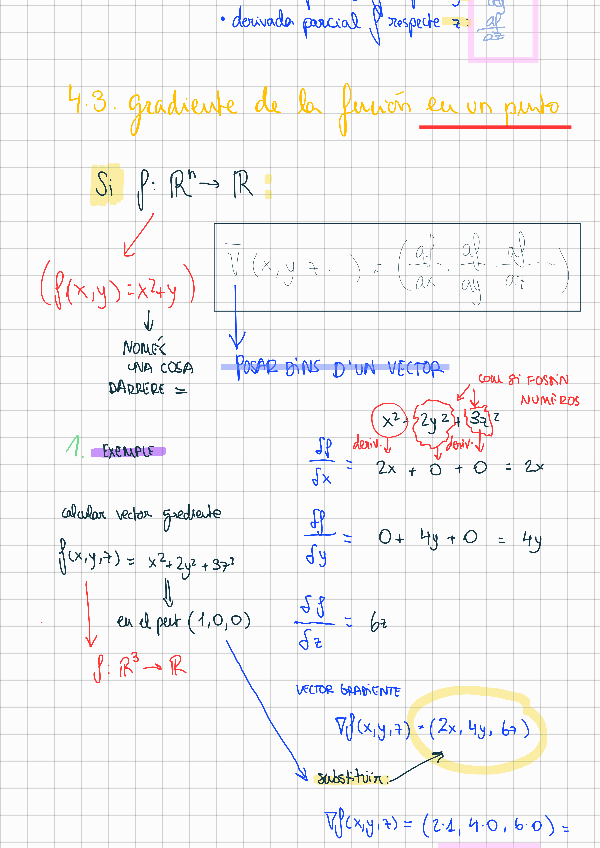 • derivada parcial f respecte z:
4.3. gradiente de la función en un punto
Si f: ℝⁿ → ℝ :
∇ (x, y z . . ) = (∂f/∂x . ∂f/∂y ∂f/∂z ...)
(f(x,y) = x²+y)
NOMÉS
UNA COSA
DARRERE =
POSAR DINS D'UN VECTOR
COM SI FOSSIN
NÚMEROS
x² + 2y² + 3z²
deriv. deriv.
1. EXEMPLE
δf/δx = 2x + 0 + 0 = 2x
calcular vector gradiente
f(x,y,z) = x²+2y²+3z²
δf/δy = 0 + 4y + 0 = 4y
en el punt (1,0,0)
δf/δz = 6z
f: ℝ³ → ℝ
VECTOR GRADIENTE
∇f(x,y,z) = (2x, 4y, 6z)
substituir:
∇f(x,y,z) = (2·1, 4·0, 6·0) =